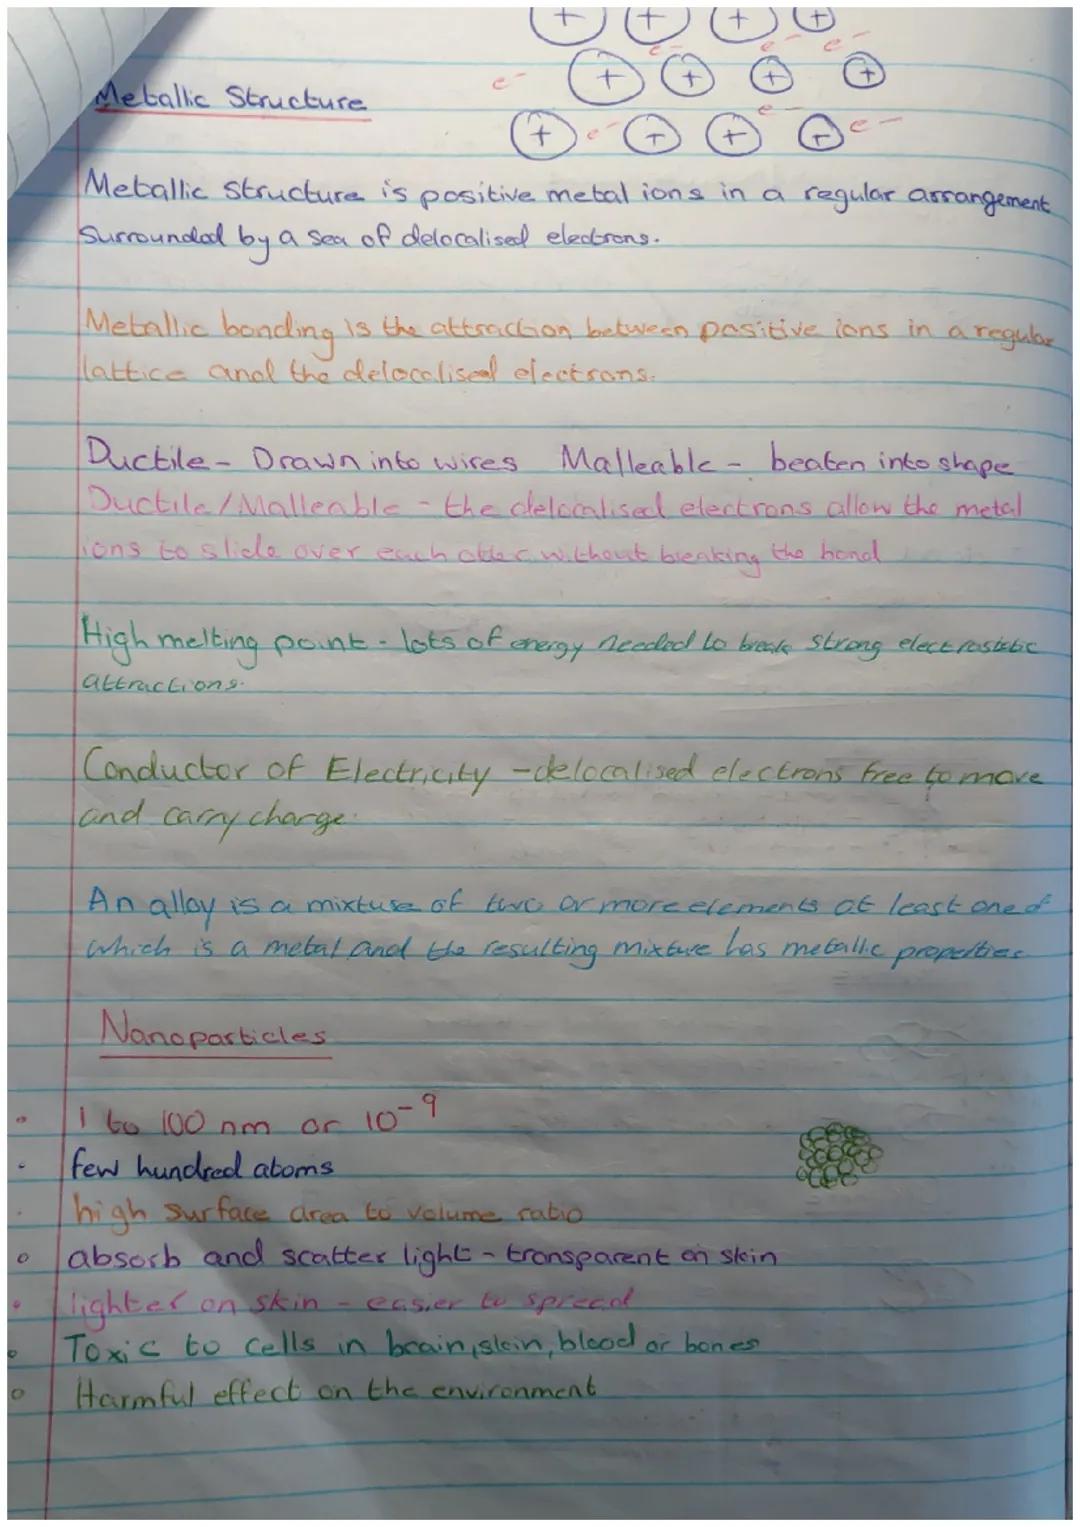 + + + +
e- e- e-
e- + + + +
e-
+ e- + + + e-
Metallic Structure
Metallic structure is positive metal ions in a regular arrangement
surrounded by a sea of delocalised electrons.
Metallic bonding is the attraction between positive ions in a regular
lattice and the delocalised electrons.
Ductile - Drawn into wires Malleable - beaten into shape
Ductile/Malleable - the delocalised electrons allow the metal
ions to slide over each other without breaking the bond
High melting point - lots of energy needed to break strong electrostatic
attractions.
Conductor of Electricity - delocalised electrons free to move
and carry charge.
An alloy is a mixture of two or more elements at least one of
which is a metal and the resulting mixture has metallic properties.
Nanoparticles
1 to 100 nm or 10-9
few hundred atoms
high surface area to volume ratio
absorb and scatter light - transparent on skin
lighter on skin - easier to spread
Toxic to cells in brain, skin, blood or bones
Harmful effect on the environment